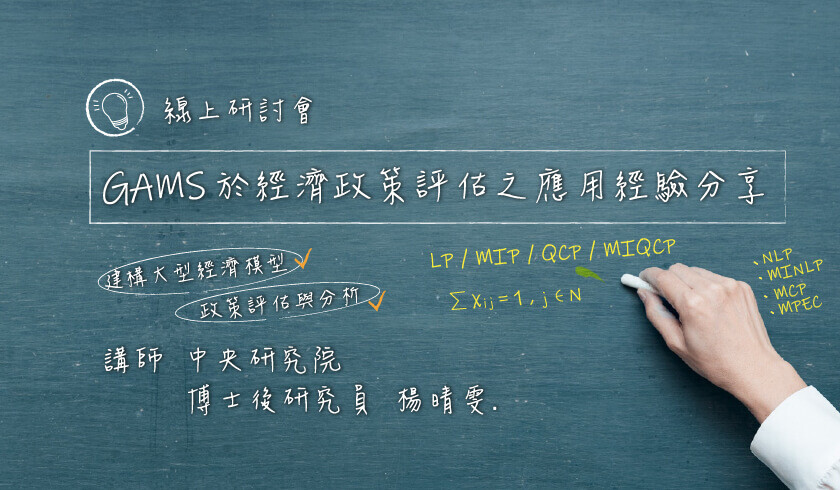 線上研討會
GAMS於經濟政策評估之應用經驗分享
建構大型經濟模型
政策評估與分析
LP / MIP / QCP / MIQCP
Σ Xij = 1 , j ∈ N
、NLP
、MINLP
、MCP
、MPEC
講師 中央研究院
博士後研究員 楊晴雯.